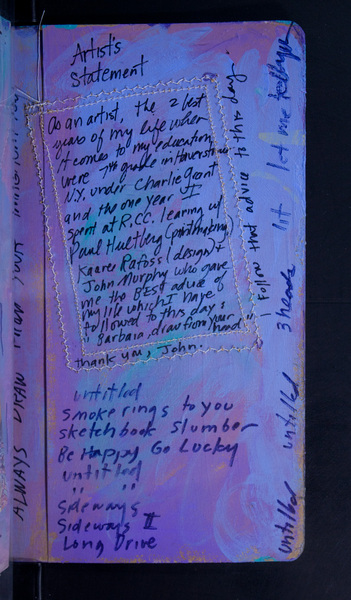 Artist's
Statement
As an artist, the 2 best
years of my life when
it comes to my education
were 7th grade in Haverstraw
N.Y. under Charlie Grant
and the one year I
spent at R.CC. learing w/
Paul (photography)
Kaare Rafoss (design) +
John Murphy who gave
me the BEst advice of
my life which I have
followed to this day:
"Barbara, draw from your
hand"
thank you, John.
Follow that advice to this day.
untitled
Smoke rings to you
sketchbook slumber
Be Happy Go Lucky
untitled
" "
Sideways
Sideways II
Long Drive
untitled untitled 3 heads let me
ALWAYS DREAM